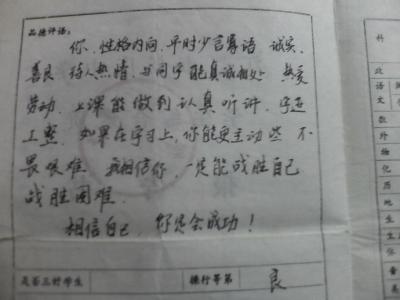 品德评语:
你、性格内向,平时少言寡语 诚实、
善良 待人热情、与同学能真诚相处 热爱
劳动、上课能做到认真听讲、字迹
工整、如果在学习上,你能更主动些 不
畏艰难 我相信你,一定能战胜自己
战胜困难、
相信自己,你是会成功!
是否三好学生
德行等第
良
科
政
语
数
外
物
化
历
地
生
体
音
美